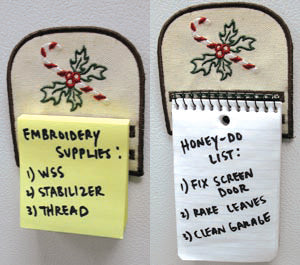 EMBROIDERY
SUPPLIES:
1) WSS
2) STABILIZER
3) THREAD
HONEY-DO
LIST:
1) FIX SCREEN
DOOR
2) RAKE LEAVES
3) CLEAN GARAGE